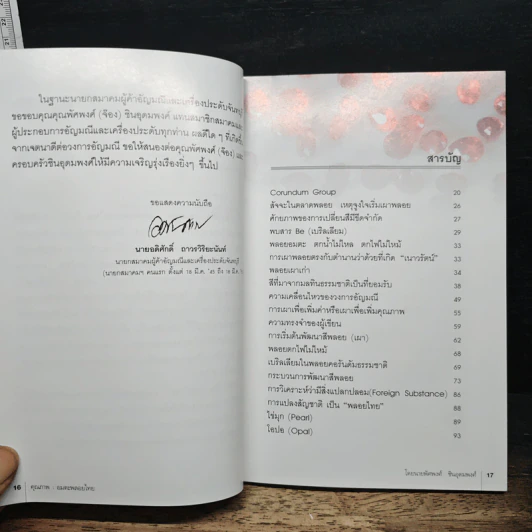 ในฐานะนายกสมาคมผู้ค้าอัญมณีและเครื่องประดับจันทบุรี
ขอขอบคุณคุณพัศพงศ์ (จ๊อง) ชินอุดมพงศ์ แทนสมาชิกสมาคมและ
ผู้ประกอบการอัญมณีและเครื่องประดับทุกท่าน ผลดีใด ๆ ที่เกิดขึ้น
จากเจตนาดีต่อวงการอัญมณี ขอให้สนองต่อคุณพัศพงศ์ (จ๊อง) และ
ครอบครัวชินอุดมพงศ์ให้มีความเจริญรุ่งเรืองยิ่งๆ ขึ้นไป
ขอแสดงความนับถือ
นายอดิศักดิ์ ถาวรวิริยะนันท์
นายกสมาคมผู้ค้าอัญมณีและเครื่องประดับจันทบุรี
(นายกสมาคมฯ คนแรก ตั้งแต่ 18 มี.ค.
16 คุณภาพ
สารบัญ
Corundum Group 20
สัจจะในตลาดพลอย เหตุจูงใจเริ่มเผาพลอย 26
ศักยภาพของการเปลี่ยนสีมีขีดจำกัด 27
พบสาร Be (เบริลเลียม) 29
พลอยอมตะ ตกน้ำไม่ไหล ตกไฟไม่ไหม้ 33
การเผาพลอยตรงกับตำนานว่าด้วยที่เกิด "เนาวรัตน์" 33
พลอยเผาเก่า 34
สีที่มาจากมลทินธรรมชาติเป็นที่ยอมรับ 38
ความเคลื่อนไหวของวงการอัญมณี 49
การเผาเพื่อเพิ่มค่าหรือเผาเพื่อเพิ่มคุณภาพ 55
ความทรงจำของผู้เขียน 59
การเริ่มต้นพัฒนาสีพลอย (เผา) 62
พลอยตกไฟไม่ไหม้ 68
เบริลเลียมในพลอยคอรันดัมธรรมชาติ 69
กระบวนการพัฒนาสีพลอย 73
การวิเคราะห์ว่ามีสิ่งแปลกปลอม(Foreign Substance) 86
การแปลงสัญชาติ เป็น "พลอยไทย" 88
ไข่มุก (Pearl) 89
โอปอ (Opal) 93
โดยนายพัศพงศ์ ชินอุดมพงศ์ 17